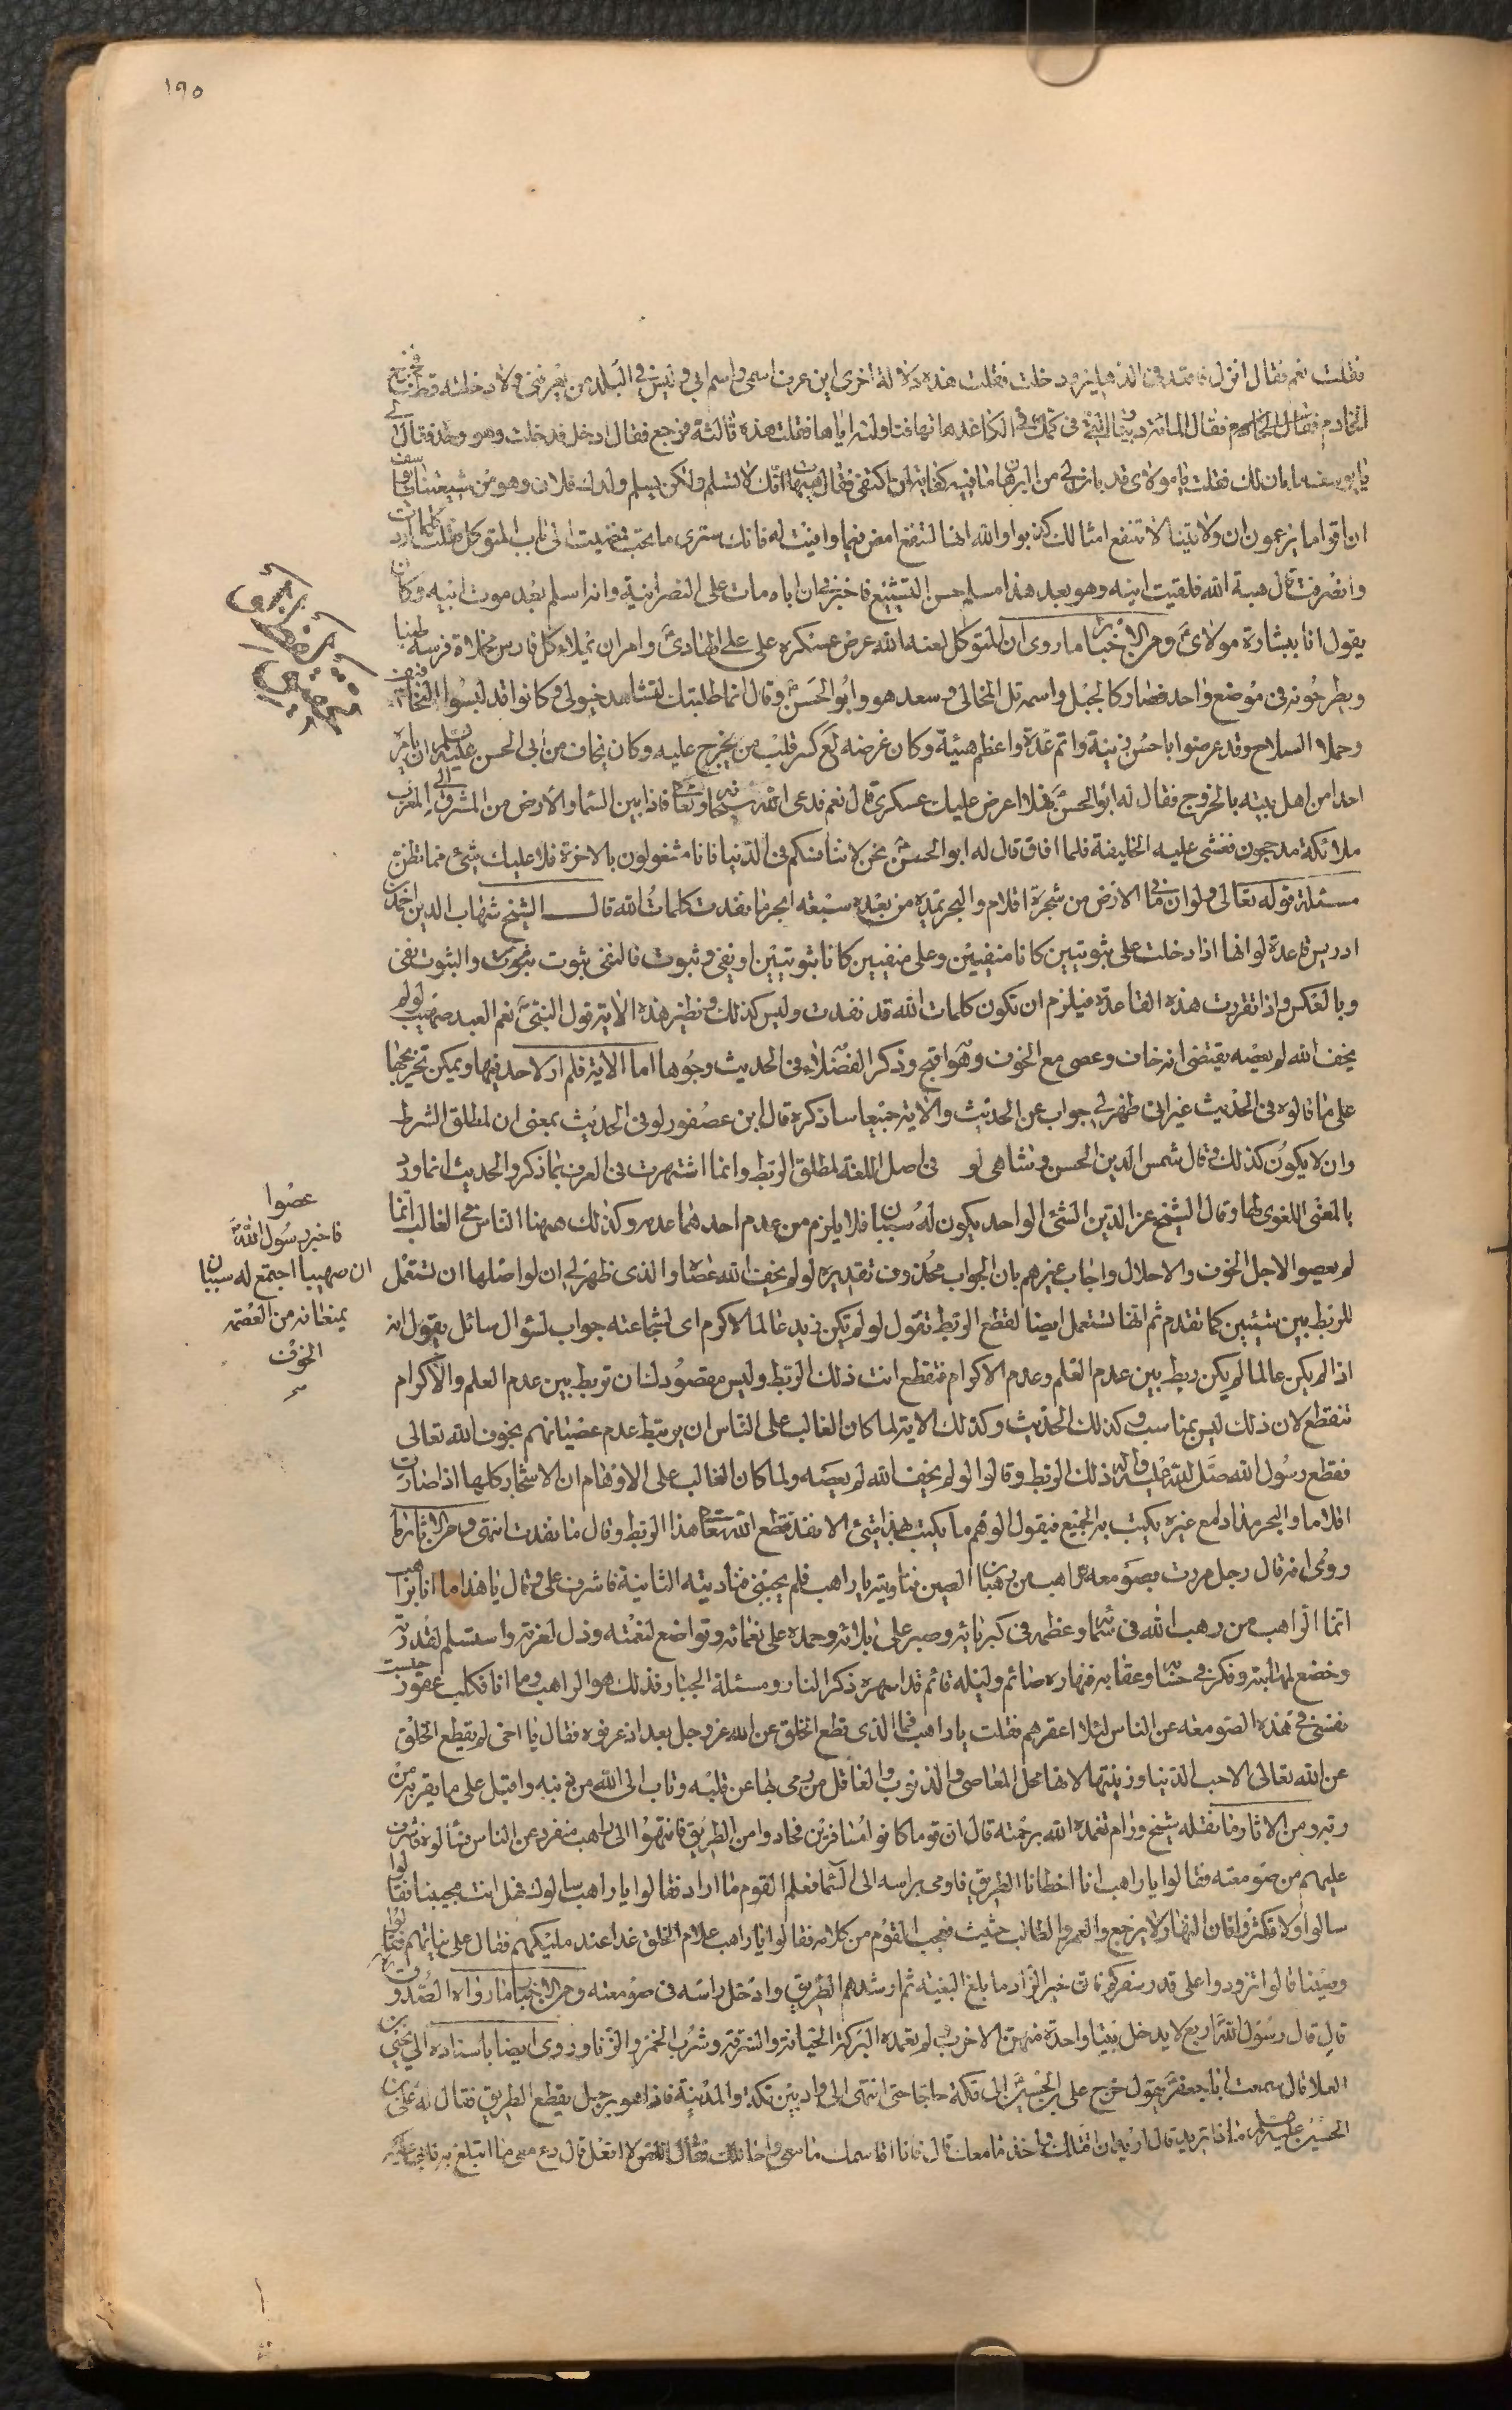 ١٩٥
فقلت نعم فقال انزل فاقعد في الدهليز ودخلت فقلت هذه دلالة اخرى اين عرف اسمي واسم ابي وليس في البلد من يعرفني ولا دخلته قط فخرج
الخادم فقال المائة دينار التي في كمك في الكاغد هاتها فناولته اياها فقلت هذه ثالثة فرجع فقال ادخل فدخلت وهو وحده فقال لي
يا يوسف اما بان لك فقلت يا مولاي قد بان لي من البرهان ما فيه كفاية لمن اكتفى فقال هيهات انك لا تسلم ولكن يسلم ولدك فلان وهو من شيعتنا يا يوسف
ان اقواما يزعمون ان ولايتنا لا تنفع امثالك كذبوا والله انها لتنفع امض فيما وافيت له فانك سترى ما تحب فمضيت الى باب المتوكل فقلت كلما اردت
وانصرفت قال هبة الله فلقيت ابنه وهو بعد هذا مسلم حسن التشيع فاخبرني ان اباه مات على النصرانية وانه اسلم بعد موت ابيه وكان
يقول انا ببشارة مولاي ومن الاخبار ما روى ان المتوكل لعنه الله عرض عسكره على علي الهادي وامر ان يملاء كل فارس مخلاة فرسه طينا
ويطرحونه في موضع واحد فصار كالجبل واسمه تل المخالي وسعد هو وابو الحسن وقال انما طلبتك لتشاهد خيولي وكانوا قد لبسوا التخافيف
وحملا السلاح وقد عرضوا باحسن زينة واتم عدة واعظم هيئة وكان غرضه كسر قلب من يخرج عليه وكان يخاف من ابي الحسن عليه السلام ان يامر
احدا من اهل بيته بالخروج فقال له ابو الحسن فهل اعرض عليك عسكري قال نعم فدعى الله سبحانه وتعالى فاذا بين السما والارض من المشرق الى المغرب
ملائكة مدججون فغشي عليه الخليفة فلما افاق قال له ابو الحسن نحن لا ننافسكم في الدنيا فانا مشغولون بالاخرة فلا عليك شيئ مما تظن
مسئلة قوله تعالى ولو ان ما في الارض من شجرة اقلام والبحر يمده من بعده سبعة ابحر ما نفدت كلمات الله قال الشيخ شهاب الدين احمد بن
ادريس قاعدة لو انها اذا دخلت على ثبوتيين كانا منفيين وعلى منفيين كانا ثبوتيين او نفي وثبوت فالنفي ثبوت والثبوت نفي
وبالعكس واذا تقررت هذه القاعدة فيلزم ان تكون كلمات الله قد نفدت وليس كذلك ونظير هذه الاية قول النبي نعم العبد صهيب لو لم
يخف الله لم يعصه يقتضى انه خاف وعصى مع الخوف وهو اقبح وذكر الفضلاء في الحديث وجوها اما الاية فلم ار لاحد فيها ويمكن تخريجها
على ما قالوه في الحديث غير اني ظهر لي جواب عن الحديث والاية جميعا ساذكره قال ابن عصفور لو في الحديث بمعنى ان لمطلق الشرط
وان لا يكون كذلك وقال شمس الدين الحسروشاهى لو في اصل اللغة لمطلق الربط وانما اشتهرت في العرف بما ذكر والحديث انما ورد
بالمعنى اللغوي لها وقال الشيخ عز الدين الشئ الواحد يكون له سببان فلا يلزم من عدم احدهما عدمه وكذلك ههنا الناس في الغالب انما
لم يعصوا لاجل الخوف والاجلال واجاب غيرهم بان الجواب محذوف تقديره لو لم يخف الله عصاه والذي ظهر لي ان لو اصلها ان تستعمل
للربط بين شيئين كما تقدم ثم انها تستعمل ايضا لقطع الربط تقول لو لم يكن زيد عالما لاكرم اى لشجاعته جواب لسؤال سائل يقول انه
اذا لم يكن عالما لم يكرم ربط بين عدم العلم وعدم الاكرام فتقطع انت ذلك الربط وليس مقصودك ان تربط بين عدم العلم والاكرام
تنقطع لان ذلك ليس بمناسب وكذلك الحديث وكذلك الاية لما كان الغالب على الناس ان يرتبط عدم عصيانهم بخوف الله تعالى
فقطع رسول الله صلى الله عليه واله ذلك الربط وقالوا لو لم يخف الله لم يعصه ولما كان الغالب على الاوهام ان الاشجار كلها اذا صارت
اقلاما والبحر مدادا مع غيره يكتب به الجميع فيقول الوهم ما يكتب بهذا شئ الا نفد فقطع الله تعالى هذا الربط وقال ما نفدت انتهى ومن الاثار ما
روى انه قال رجل مررت بصومعة راهب من رهبان الصين فناديته يا راهب فلم يجبني فناديته الثانية فاشرف على وقال يا هذا ما انا براهب
انما الراهب من رهب الله في سمائه وعظمه في كبريائه وصبر على بلائه وحمده على نعمائه وتواضع لعظمته وذل لعزته واستسلم لقدرته
وخضع لمهابته وفكر في حسابه وعقابه فنهاره صائم وليله قائم قد اسهره ذكر النار ومسئلة الجبار فذلك هو الراهب واما انا فكلب عقور حبست
نفسي في هذه الصومعة عن الناس لئلا اعقرهم فقلت يا راهب فما الذي قطع الخلق عن الله عز وجل بعد اذ عرفوه فقال يا اخي لم يقطع الخلق
عن الله تعالى الا حب الدنيا وزينتها لانها محل المعاصي والذنوب والعاقل من رمى بها عن قلبه وتاب الى الله من ذنبه واقبل على ما يقربه من
ربه ومن الاثار ما نقله شيخ ورام تغمده الله برحمته قال ان قوما كانوا مسافرين فحادوا من الطريق فانتهوا الى راهب منفرد عن الناس فسالوه فاشرف
عليهم من صومعته فقالوا يا راهب انا اخطانا الطريق فاومى براسه الى السما فعلم القوم ما اراد فقالوا يا راهب سائلوك فهل انت مجيبنا فقال
سالوا ولا تكثروا فان النهار لا يرجع والعمر والطالب حثيث فعجب القوم من كلامه فقالوا يا راهب علام الخلق غدا عند مليكهم فقال على نياتهم فقالوا
وصينا قال تزودوا على قدر سفركم فان خير الزاد ما بلغ البغية ثم ارشدهم الطريق وادخل راسه في صومعته ومن الاخبار ما رواه الصدوق
قال قال رسول الله اربع لا يدخل بيتا واحدة منهن الا خرب ولم تعمره البركة الخيانة والسرقة وشرب الخمر والزنا وروى ايضا باسناده الى يحيى بن
العلا قال سمعت ابا جعفر يقول خرج علي بن الحسين الى مكة حاجا حتى انتهى الى واد بين مكة والمدينة فاذا هو برجل يقطع الطريق فقال له علي بن
الحسين عليه السلام ماذا تريد قال اريد ان اقتلك واخذ ما معك قال فانا اقاسمك ما معي واحللك فقال اللص لا افعل قال دع معي ما اتبلغ به فابى عليه
عصوا
فاخبر رسول الله
ان صهيبا اجتمع له سببان
يمنعانه من العصمة
الخوف